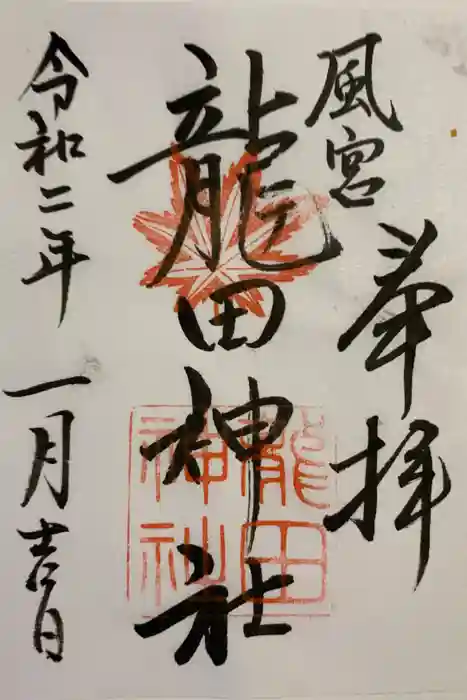 奉拝
風宮
龍田神社
令和二年一月吉日
龍田
神社